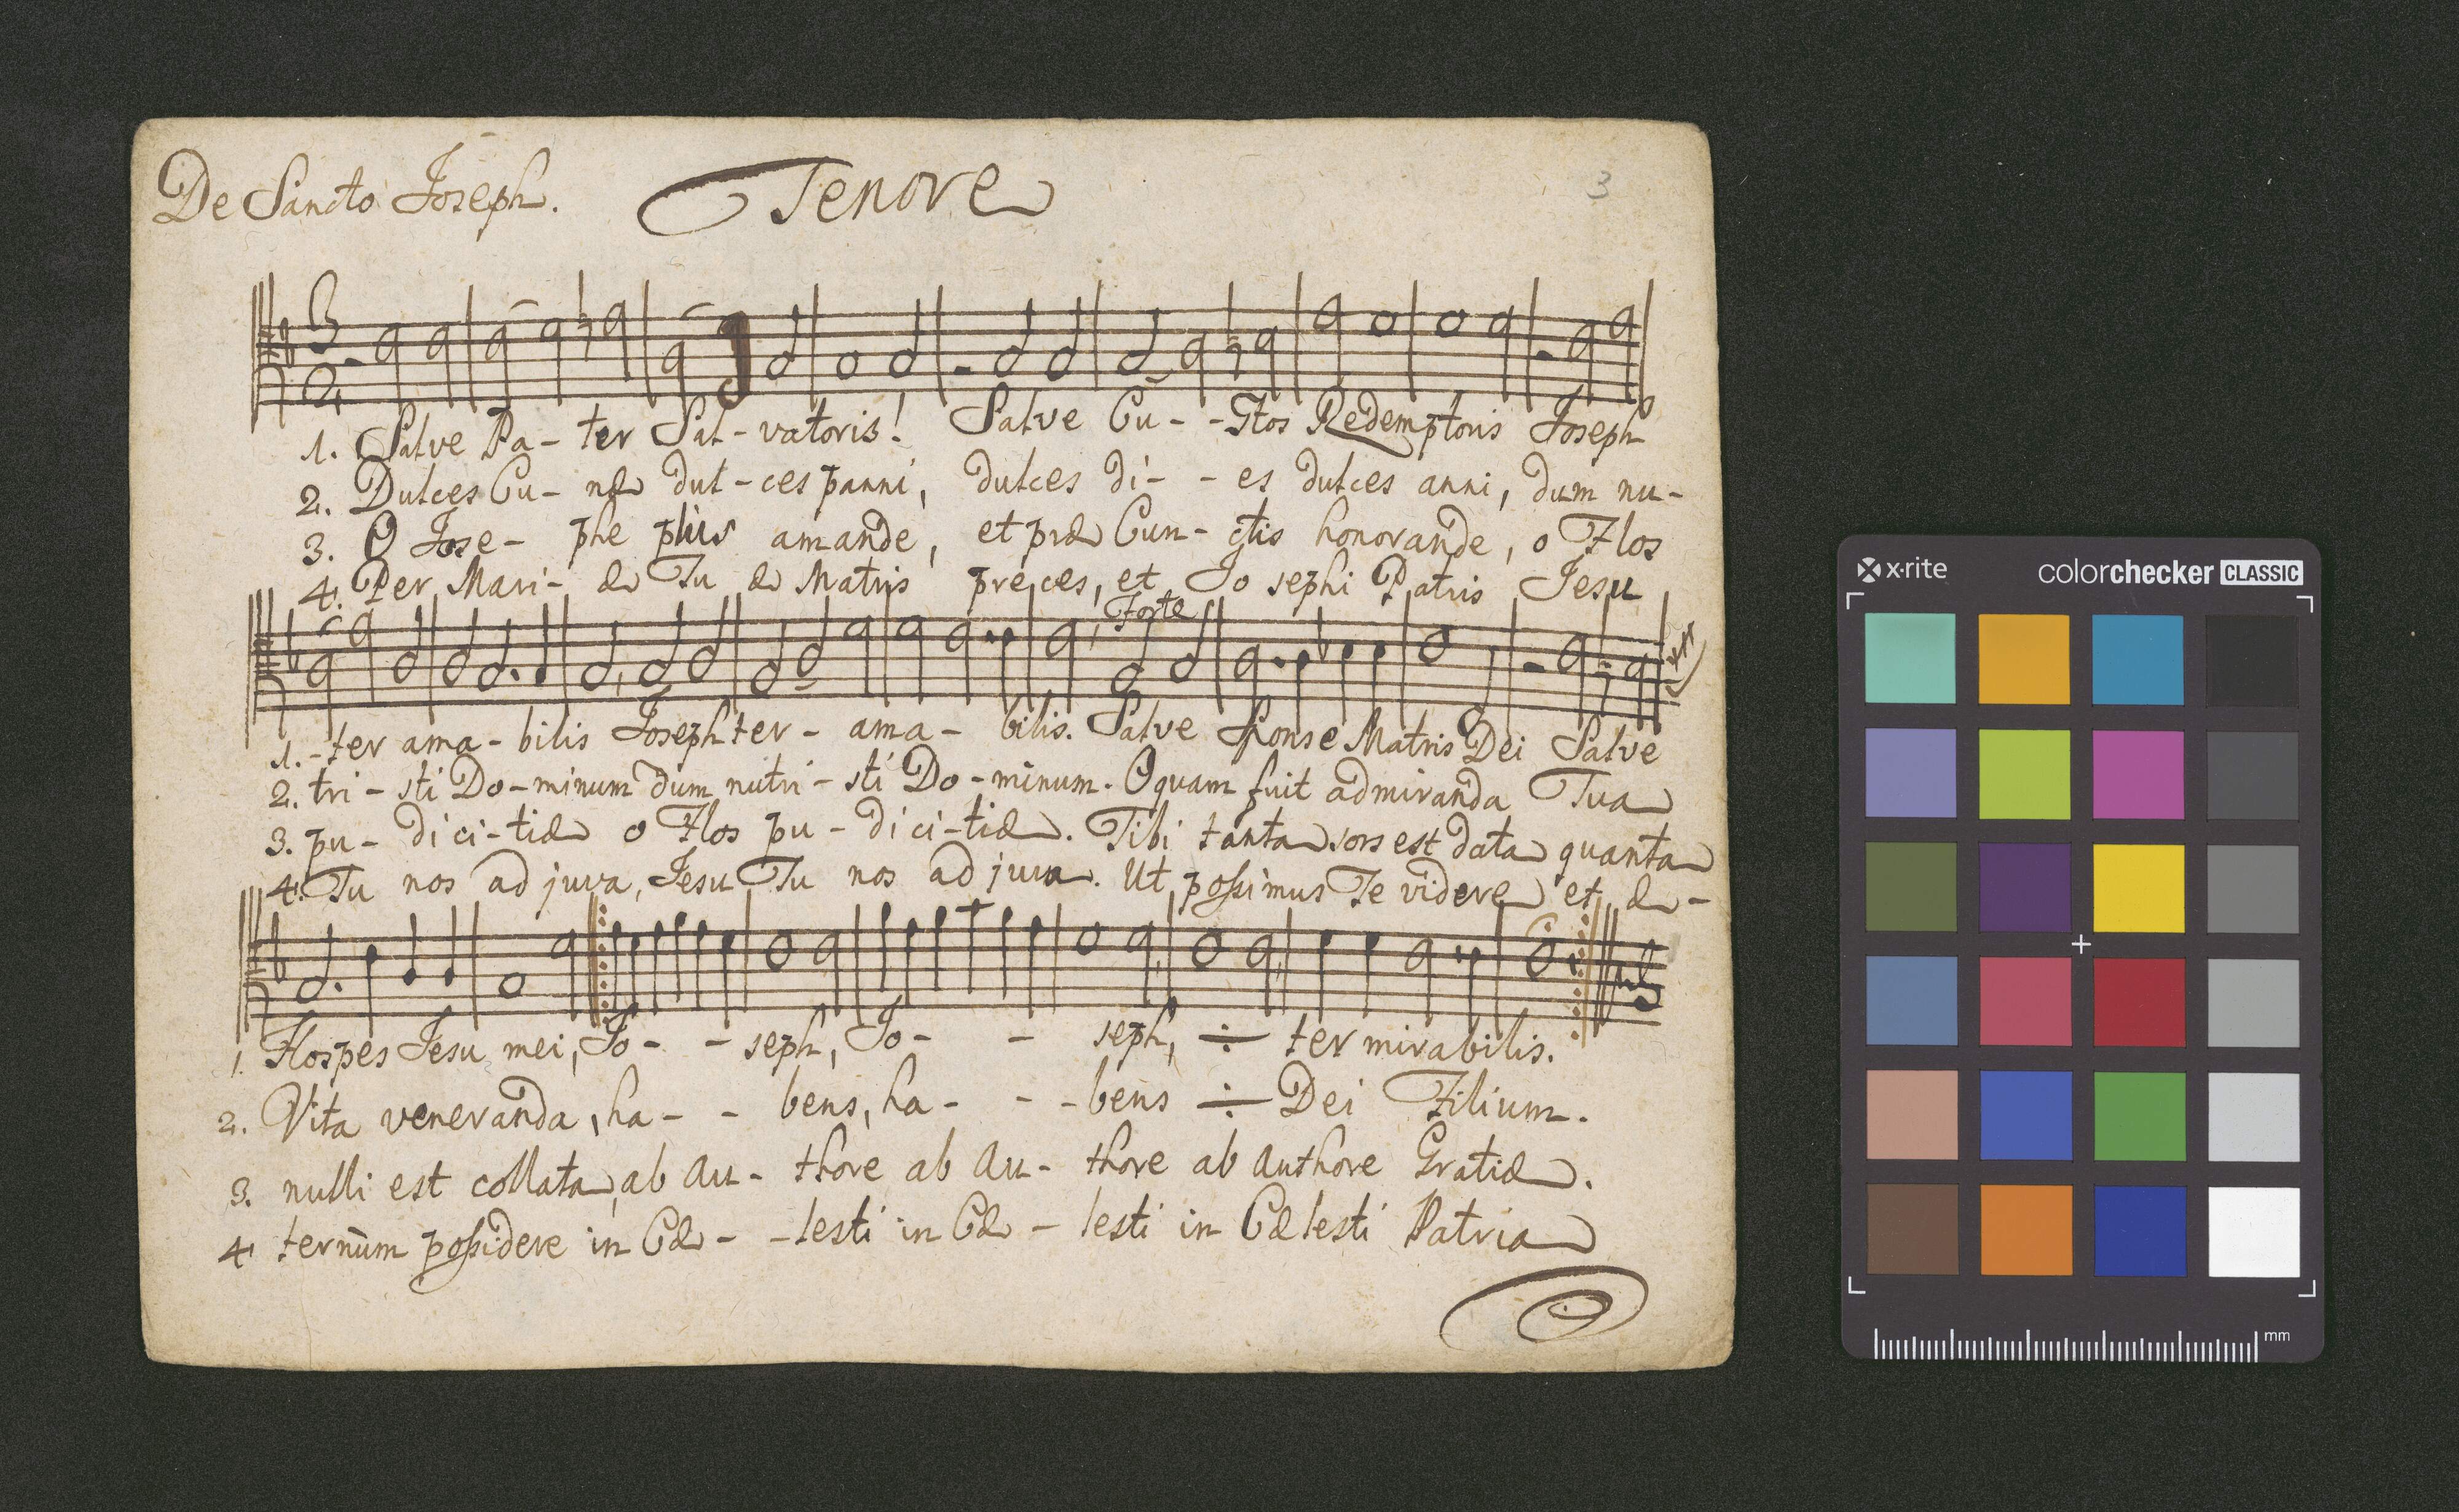 De Sancto Joseph. Tenore 3
1. Salve Pa- ter Sal-vatoris! Salve Cu- -stos Redemptoris Joseph
2. Dulces Cu- næ dul-ces panni, dulces di- - es dulces anni, dum nu-
3. O Jose- phe plus amande, et præ Cun- ctis honorande, o Flos
4. Per Mari- æ Tu æ Matris preces, et Jo sephi Patris Jesu
Forte
1. -ter ama-bilis Joseph ter- ama- bilis. Salve Sponse Matris Dei Salve
2. tri- sti Do-minum dum nutri-sti Do-minum. O quam fuit admiranda Tua
3. pu- di ci-tiæ o Flos pu- di ci-tiæ. Tibi tanta sors est data quanta
4. Tu nos ad juva, Jesu Tu nos ad juva. Ut possimus Te videre et æ-
1. Hospes Jesu mei, Jo- - seph, Jo- - seph, ÷ ter mirabilis.
2. Vita veneranda, ha- - bens, ha- - -bens ÷ Dei Filium.
3. nulli est collata, ab Au- thore ab Au- thore ab Authore Gratiæ.
4. ternùm possidere in Cæ- -lesti in Cæ- lesti in Cælesti Patria
x·rite colorchecker CLASSIC
mm